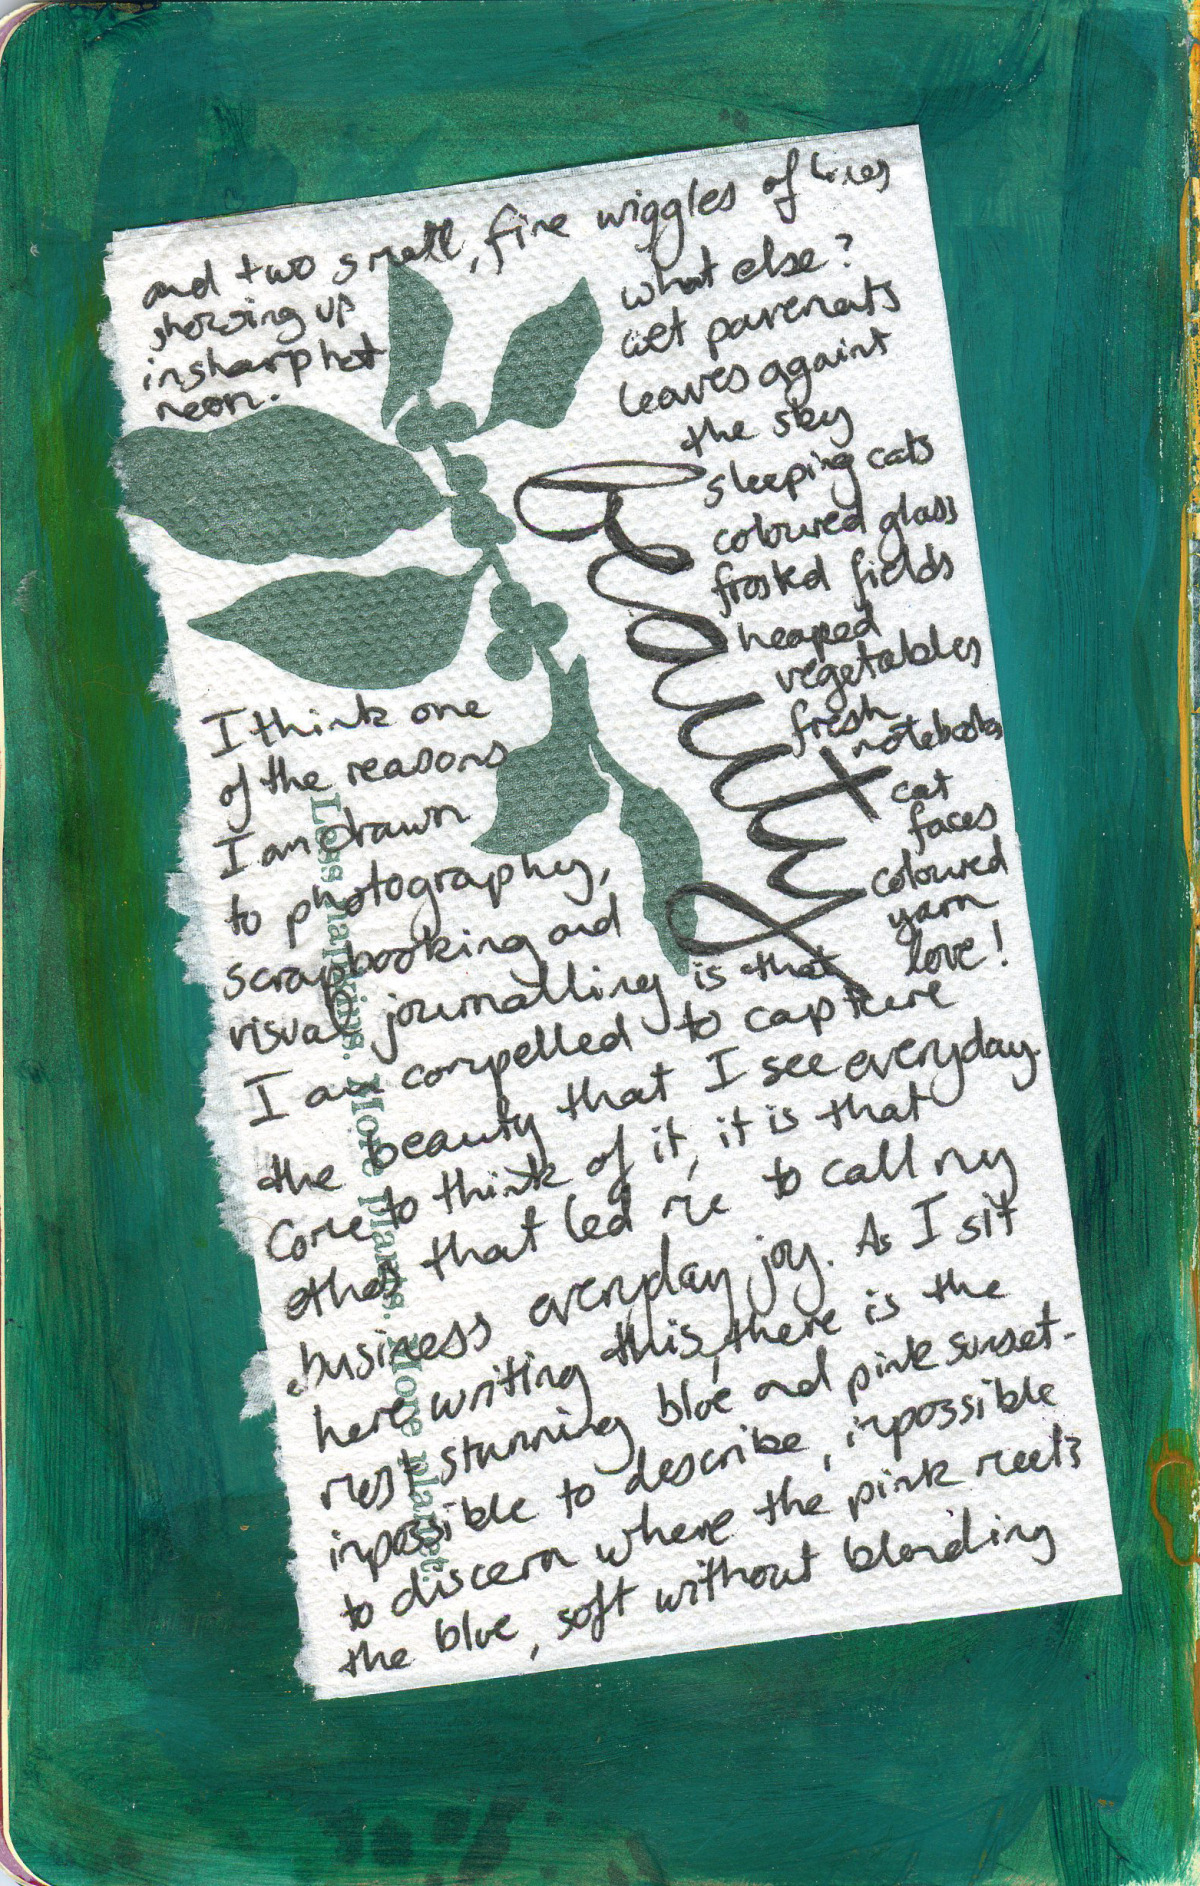 and two small, fine wiggles of lines
showing up
in sharp hot
neon.
what else?
wet pavements
leaves against
the sky
sleeping cats
coloured glass
frosted fields
heaped
vegetables
fresh
notebooks
cat
faces
coloured
yarn
love!
beauty
I think one
of the reasons
I am drawn
to photography,
scrapbooking and
visual journalling is that
I am compelled to capture
the beauty that I see everyday.
Come to think of it, it is that
ethos that led me to call my
business everyday joy. As I sit
here writing this, there is the
most stunning blue and pink sunset -
impossible to describe, impossible
to discern where the pink meets
the blue, soft without blending
Less napkins. More plants. More planet.